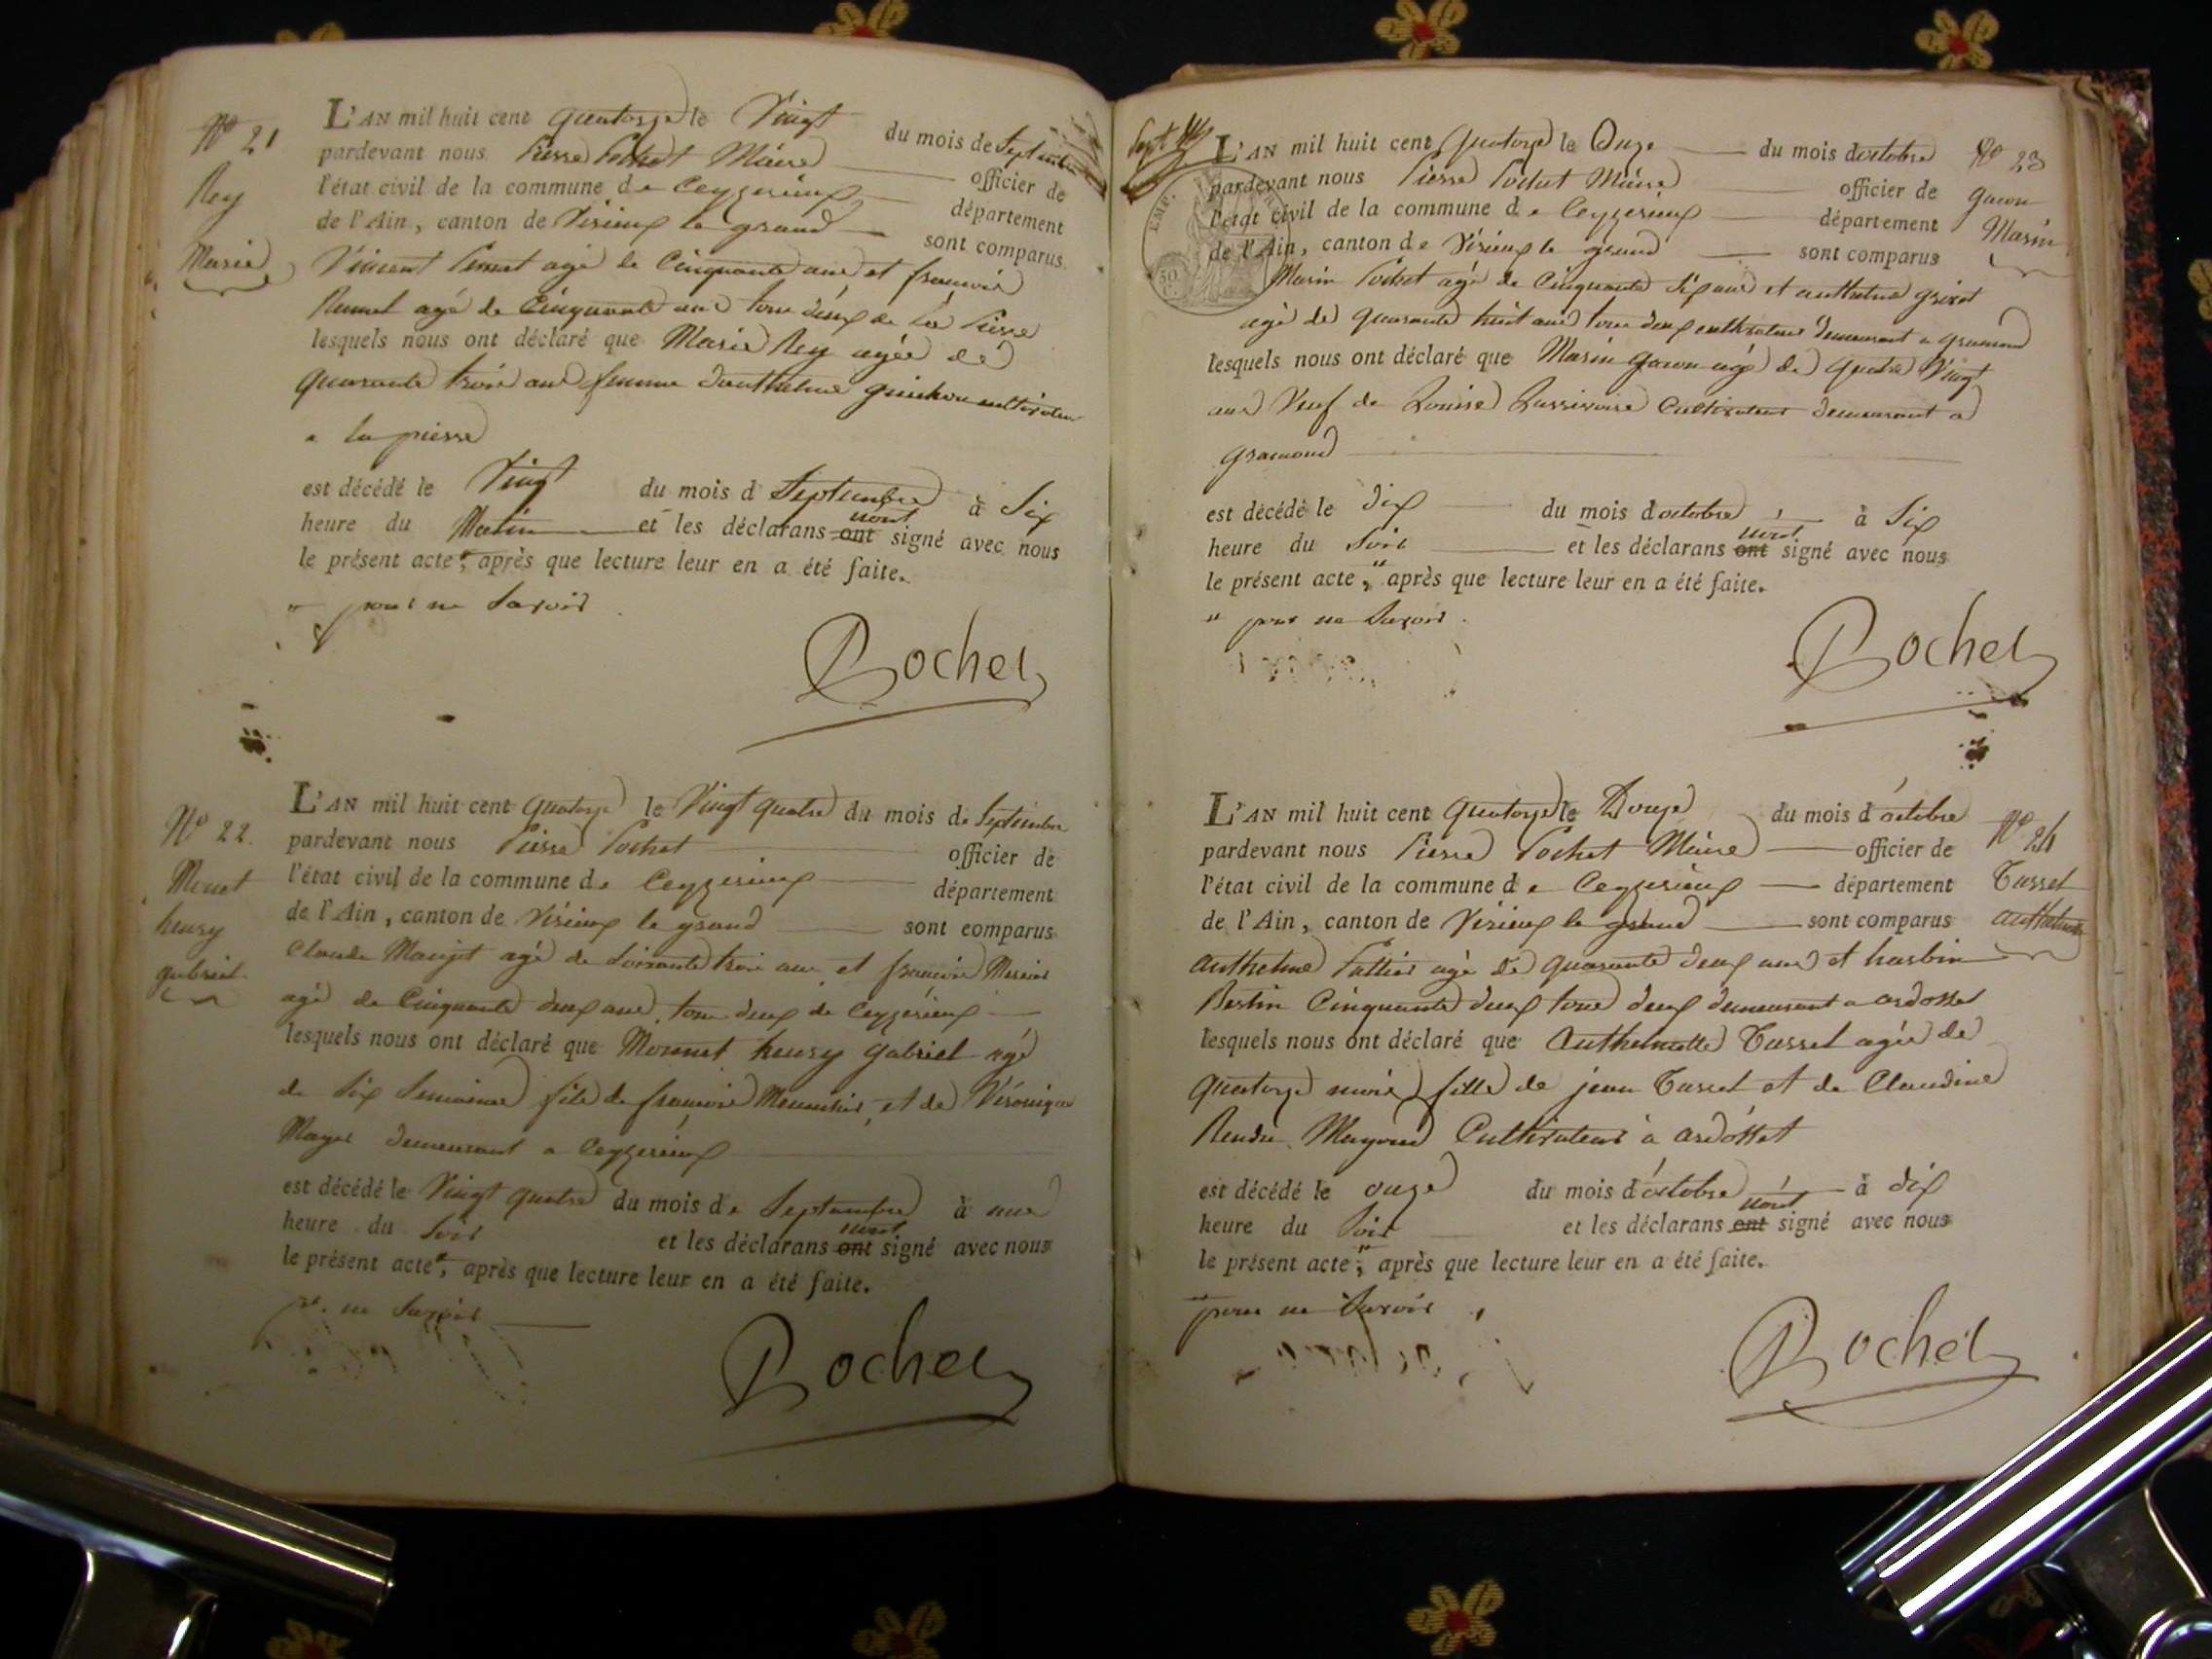 N° 21
Rey
Marie
L'AN mil huit cent quatorze le Vingt du mois de Septembre
pardevant nous Pierre Pochet Maire officier de
l'état civil de la commune de Ceyzerieux département
de l'Ain, canton de Virieux le grand sont comparus
Vincent agé de Cinquante ans et francois
agé de Cinquante ans tous deux de La Pierre
lesquels nous ont déclaré que Marie Rey agée de
quarante trois ans femme d'anthelme guichon cultivateur
a la pierre
est décédé le Vingt du mois d Septembre à Six
heure du Matin et les déclarans ont nont signé avec nous
le présent acte", après que lecture leur en a été faite.
" pour ne Savoir
Pochet
N° 22.
Monet
henry
gabriel
L'AN mil huit cent quatorze le Vingt quatre du mois de Septembre
pardevant nous Pierre Pochet officier de
l'état civil de la commune de Ceyzerieux département
de l'Ain, canton de Virieux le grand sont comparus
Claude agé de Soixante trois ans et francois
agé de Cinquante deux ans, tous deux de Ceyzérieux
lesquels nous ont déclaré que Monnet henry gabriel agé
de Six Semaines fils de francois et de Véronique
demeurant a Ceyzerieux
est décédé le Vingt quatre du mois de Septembre à une
heure du Soir et les déclarans ont nont signé avec nous
le présent acte", après que lecture leur en a été faite.
pr. ne Savoir
Pochet
L'AN mil huit cent quatorze le Onze du mois doctobre
pardevant nous Pierre Pochet Maire officier de
l'état civil de la commune de Ceyzerieux département
de l'Ain, canton de Virieux le grand sont comparus
Marin Pochet agé de Cinquante Six ans et anthelme
agé de quarante huit ans tous deux cultivateurs demeurant a gramond
lesquels nous ont déclaré que Marin gacon agé de quatre Vingt
ans Veuf de Louise Cultivateur demeurant a
gramond
est décédé le dix du mois doctobre à Six
heure du Soir et les déclarans ont nont signé avec nous
le présent acte," après que lecture leur en a été faite.
" pour ne Savoir.
Pochet
N° 23
gacon
Marin
L'AN mil huit cent quatorze le Douze du mois d'octobre
pardevant nous Pierre Pochet Maire officier de
l'état civil de la commune de Ceyzerieux département
de l'Ain, canton de Virieux le grand sont comparus
anthelme agé de quarante deux ans et
Bertin Cinquante deux tous deux demeurant a ardosset
lesquels nous ont déclaré que Anthelmette Tusset agée de
quatorze mois fille de jean Tusset et de Claudine
Cultivateur à ardosset
est décédé le onze du mois d'octobre à dix
heure du Soir et les déclarans ont nont signé avec nous
le présent acte," après que lecture leur en a été faite.
" pour ne Savoir
Pochet
N° 24
Tusset